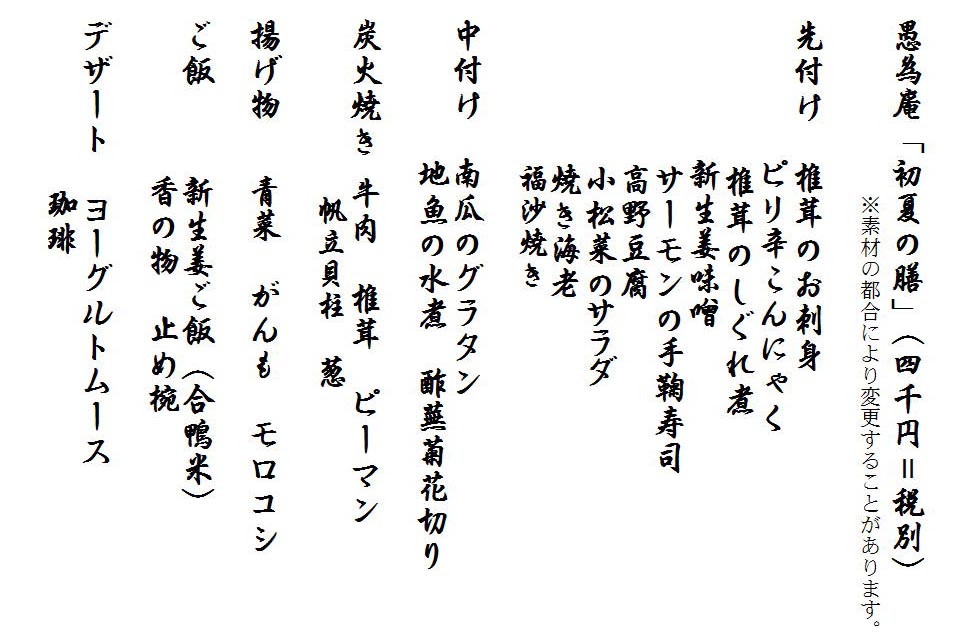 愚為庵「初夏の膳」（四千円＝税別）
※素材の都合により変更することがあります。
先付け　椎茸のお刺身
ピリ辛こんにゃく
椎茸のしぐれ煮
新生姜味噌
サーモンの手鞠寿司
高野豆腐
小松菜のサラダ
焼き海老
福沙焼き
中付け　南瓜のグラタン
地魚の水煮　酢蕪菊花切り
炭火焼き　牛肉　椎茸　ピーマン
帆立貝柱　葱
揚げ物　青菜　がんも　モロコシ
ご飯　新生姜ご飯（合鴨米）
香の物　止め椀
デザート　ヨーグルトムース
珈琲